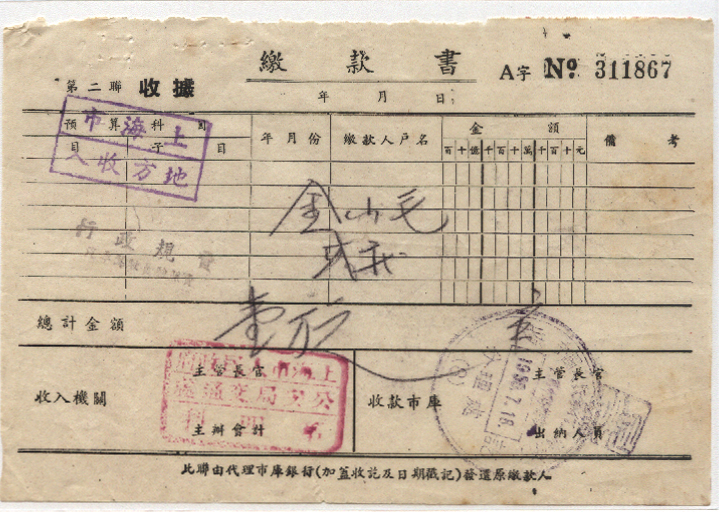 繳款書
A字 No 311867
第二聯 收據
年 月 日
上海市
地方收入
預算科目
目 子目
年月份 繳款人戶名 金額 備考
百十億千百十萬千百十元
金山毛
行政規費
總計金額
收入機關
主管長官
主辦會計
上海市
公安局交通處
收款市庫
主管長官
出納人員
1950.7.18.
此聯由代理市庫銀行(加蓋收訖及日期戳記)發還原繳款人